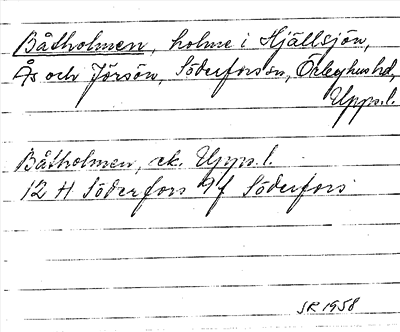 Båtholmen, holme i Hjällsjön,
Ås och Jörsön, Söderfors sn, Örbyhus hd,
Upps.l.
Båtholmen, ek. Upps.l.
12 H Söderfors 9f Söderfors
SR 1958